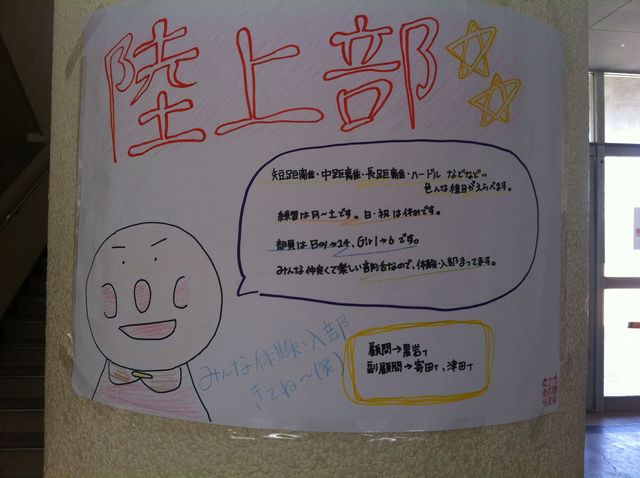 陸上部
短距離・中距離・長距離・ハードル などなど…
色んな種目がえらべます。
練習は月〜土です。日・祝は休みです。
部員は Boy→24、Girl→6 です。
みんな仲良くて楽しい部活なので、体験・入部まってます。
みんな体験・入部
きてね〜(笑)
顧問→黒岩T
副顧問→寄田T、津田T